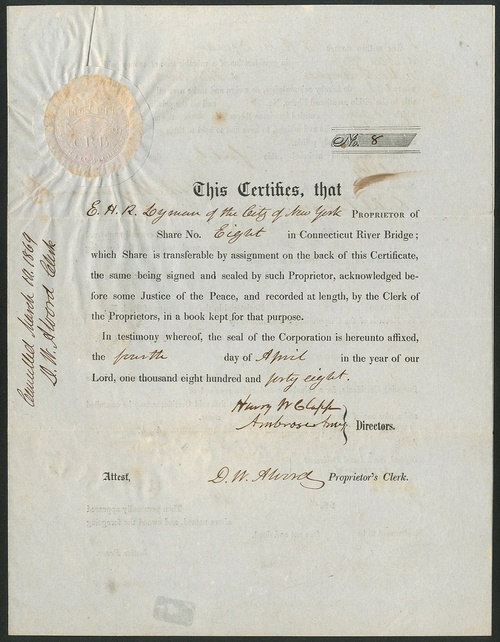 No. 8
This Certifies, that
E. H. R. Lyman of the City of New York PROPRIETOR of
Share No. Eight in Connecticut River Bridge;
which Share is transferable by assignment on the back of this Certificate,
the same being signed and sealed by such Proprietor, acknowledged be-
fore some Justice of the Peace, and recorded at length, by the Clerk of
the Proprietors, in a book kept for that purpose.
In testimony whereof, the seal of the Corporation is hereunto affixed,
the fourth day of April in the year of our
Lord, one thousand eight hundred and forty eight.
Harvey W Clapp
Ambrose
Directors.
Attest, D. W. Alvord Proprietor's Clerk.
Cancelled March 12. 1869
D. W. Alvord Clerk